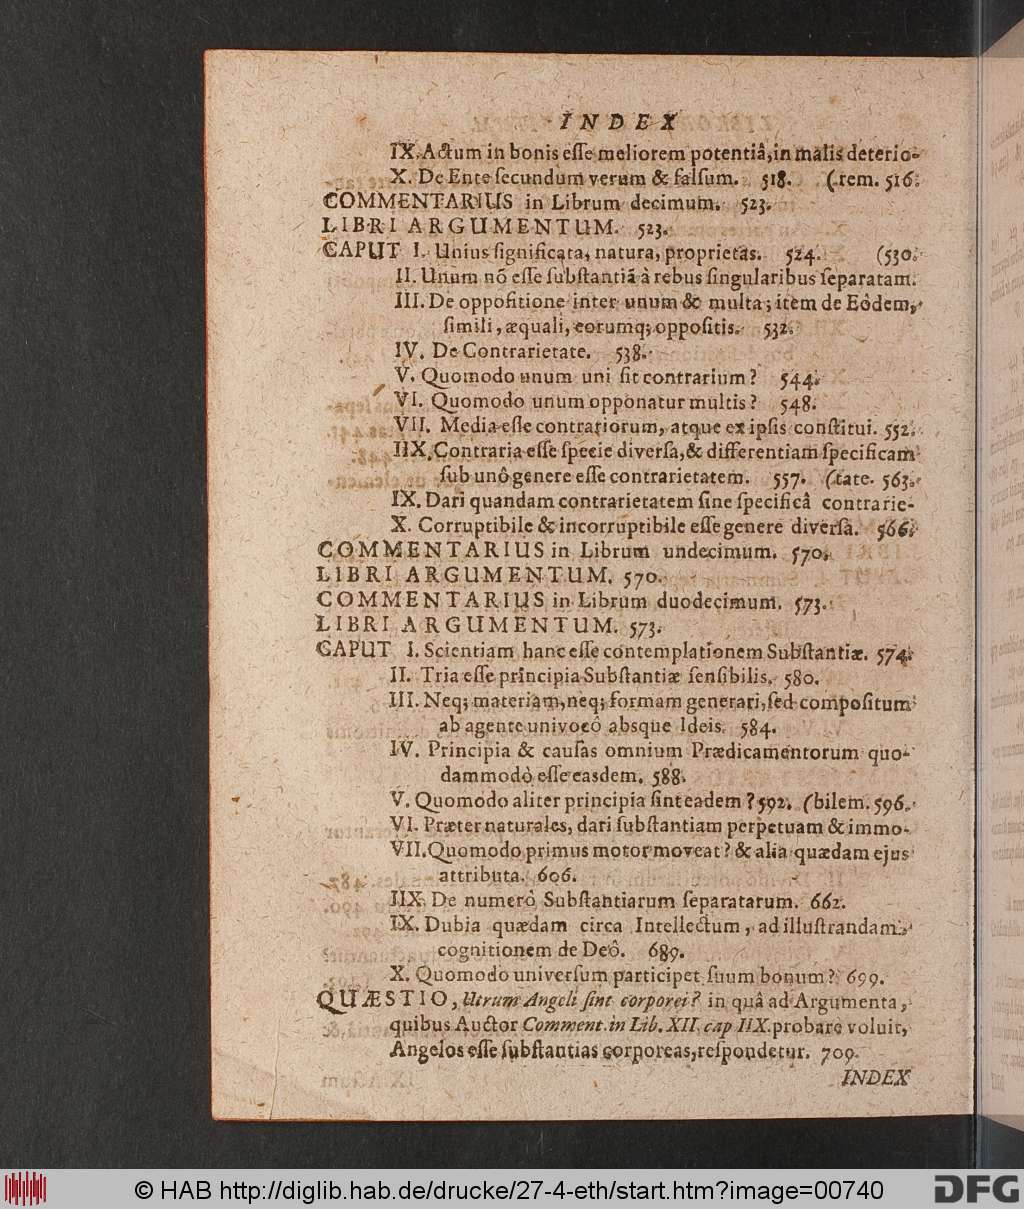 INDEX
IX. Actum in bonis eſſe meliorem potentiâ, in malis deterio-
X. De Ente ſecundum verum & falſum. 518. (rem. 516.
COMMENTARIUS in Librum decimum. 523.
LIBRI ARGUMENTUM. 523.
CAPUT I. Unius ſignificata, natura, proprietas. 524. (530.
II. Unum nō eſſe ſubſtantiā à rebus ſingularibus ſeparatam.
III. De oppoſitione inter unum & multa; item de Eôdem,
ſimili, æquali, eorumq; oppoſitis. 532.
IV. De Contrarietate. 538.
V. Quomodo unum uni ſit contrarium? 544.
VI. Quomodo unum opponatur multis? 548.
VII. Media eſſe contrariorum, atque ex ipſis conſtitui. 552.
IIX. Contraria eſſe ſpecie diverſa, & differentiam ſpecificam
ſub unô genere eſſe contrarietatem. 557. (tate. 563.
IX. Dari quandam contrarietatem ſine ſpecificâ contrarie-
X. Corruptibile & incorruptibile eſſe genere diverſa. 566.
COMMENTARIUS in Librum undecimum. 570.
LIBRI ARGUMENTUM. 570.
COMMENTARIUS in Librum duodecimum. 573.
LIBRI ARGUMENTUM. 573.
CAPUT I. Scientiam hanc eſſe contemplationem Subſtantiæ. 574.
II. Tria eſſe principia Subſtantiæ ſenſibilis. 580.
III. Neq; materiam, neq; formam generari, ſed compoſitum
ab agente univocô absque Ideis. 584.
IV. Principia & cauſas omnium Prædicamentorum quo-
dammodò eſſe easdem. 588.
V. Quomodo aliter principia ſint eadem? 592. (bilem. 596.
VI. Præter naturales, dari ſubſtantiam perpetuam & immo-
VII. Quomodo primus motor moveat? & alia quædam ejus
attributa. 606.
IIX. De numerô Subſtantiarum ſeparatarum. 662.
IX. Dubia quædam circa Intellectum, ad illuſtrandam
cognitionem de Deô. 689.
X. Quomodo univerſum participet ſuum bonum? 699.
QUÆSTIO, Utrum Angeli ſint corporei? in quâ ad Argumenta,
quibus Auctor Comment. in Lib. XII. cap IIX. probare voluit,
Angelos eſſe ſubſtantias corporeas, reſpondetur. 709.
INDEX
© HAB http://diglib.hab.de/drucke/27-4-eth/start.htm?image=00740
DFG